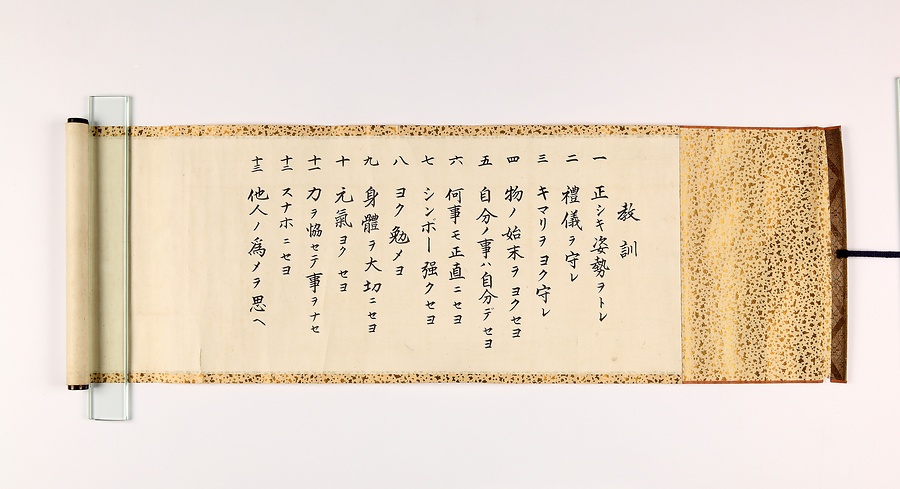 教訓
一 正シキ姿勢ヲトレ
二 禮儀ヲ守レ
三 キマリヲヨク守レ
四 物ノ始末ヲヨクセヨ
五 自分ノ事ハ自分デセヨ
六 何事モ正直ニセヨ
七 シンボー强クセヨ
八 ヨク勉メヨ
九 身體ヲ大切ニセヨ
十 元氣ヨクセヨ
十一 力ヲ恊セテ事ヲナセ
十二 スナホニセヨ
十三 他人ノ爲メヲ思ヘ